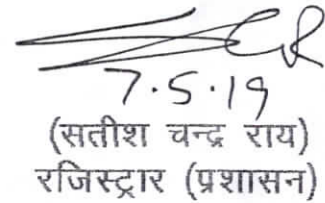 7.5.19
(सतीश चन्द्र राय)
रजिस्ट्रार (प्रशासन)